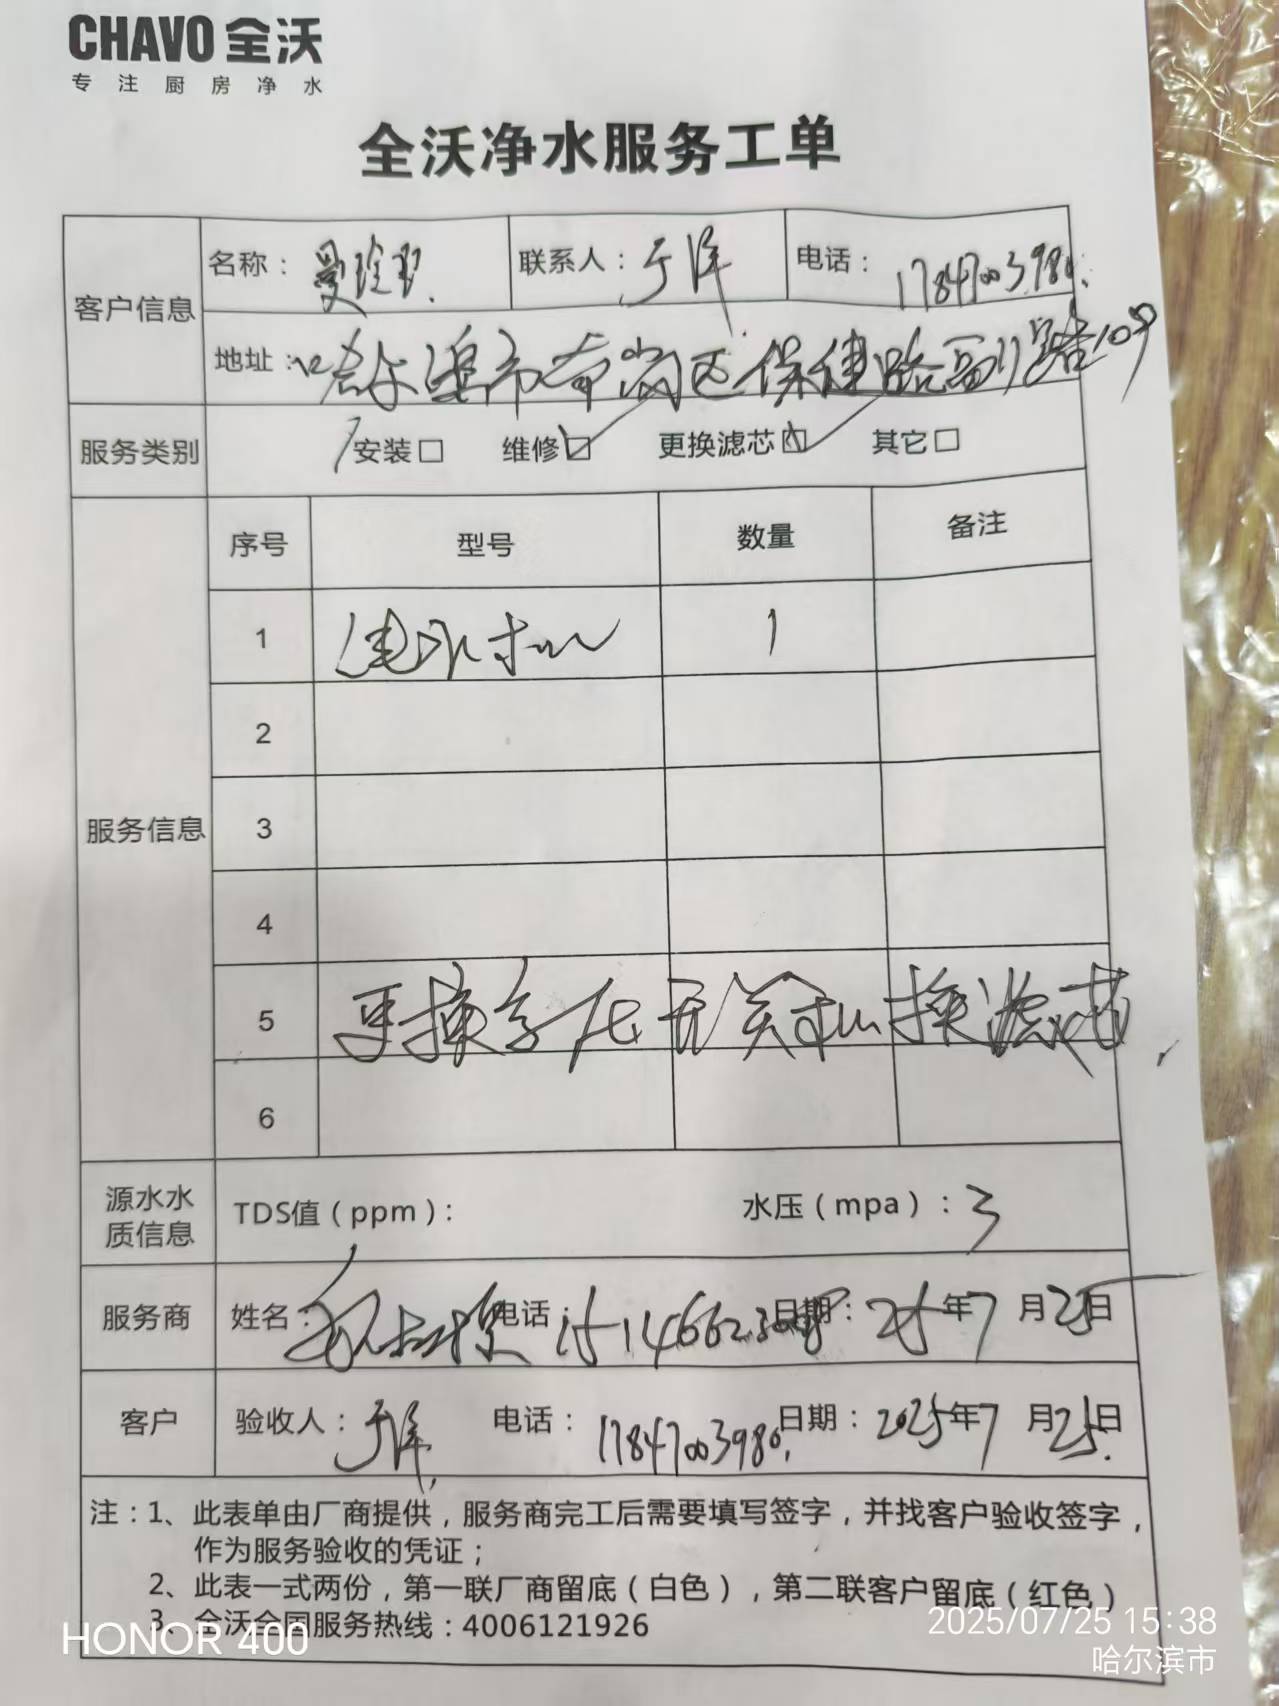 CHAVO 全沃
专注厨房净水
全沃净水服务工单
客户信息
名称：曼玲
联系人：于洋
电话：17847003980
地址：哈尔滨市南岗区保健路副
服务类别
安装□ 维修☑ 更换滤芯☑ 其它□
服务信息
序号 型号 数量 备注
1 净水机 1
2
3
4
5 更换 元 换滤芯
6
源水水质信息
TDS值（ppm）： 水压（mpa）：3
服务商 姓名： 电话： 日期：25年7月25日
客户 验收人：于洋 电话：17847003980 日期：2025年7月25日
注：1、此表单由厂商提供，服务商完工后需要填写签字，并找客户验收签字，
作为服务验收的凭证；
2、此表一式两份，第一联厂商留底（白色），第二联客户留底（红色）
3、全沃全国服务热线：4006121926
HONOR 400
2025/07/25 15:38
哈尔滨市